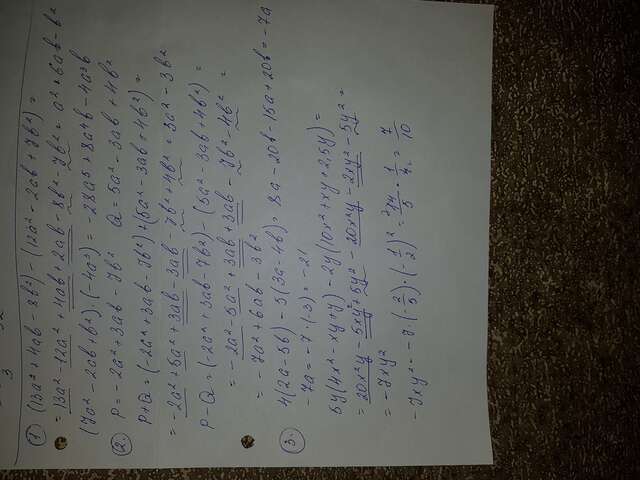 3
① (13a² + 4ab - 8b²) - (12a² - 2ab + 7b²) =
= 13a² - 12a² + 4ab + 2ab - 8b² - 7b² = a² + 6ab - b²
(7a² - 2ab + b²) · (-4a³) = -28a⁵ + 8a⁴b - 4a³b
②. P = -2a² + 3ab - 7b² Q = 5a² - 3ab + 4b²
P+Q = (-2a² + 3ab - 7b²) + (5a² - 3ab + 4b²) =
= -2a² + 5a² + 3ab - 3ab - 7b² + 4b² = 3a² - 3b²
P-Q = (-2a² + 3ab - 7b²) - (5a² - 3ab + 4b²) =
= -2a² - 5a² + 3ab + 3ab - 7b² - 4b² =
= -7a² + 6ab - 3b²
③. 4(2a - 5b) - 5(3a - 4b) = 8a - 20b - 15a + 20b = -7a
-7a = -7 · (-3) = -21
5y(4x² - xy + y) - 2y(10x² + xy + 2,5y) =
= 20x²y - 5xy² + 5y² - 20x²y - 2xy² - 5y² =
= -7xy²
-7xy² = -7 · (-2/5) · (-1/2)² = 14/5 · 1/4 = 7/10